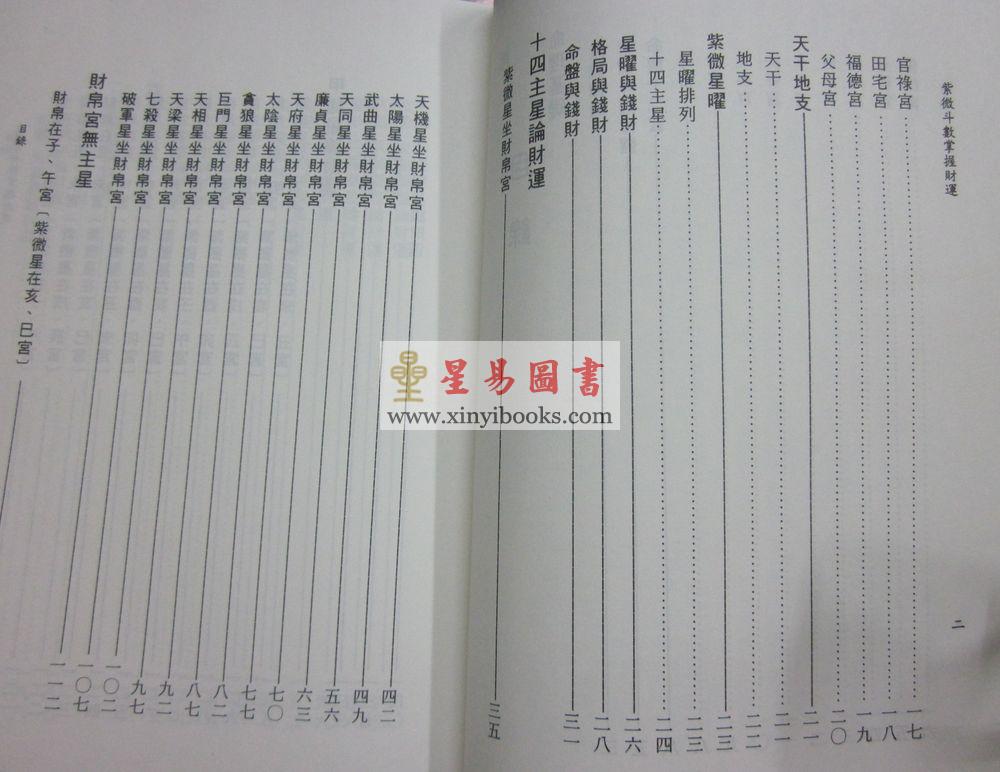 紫微斗數掌握財運
官祿宮 一七
田宅宮 一八
福德宮 一九
父母宮 二〇
天干地支 二一
天干 二一
地支 二二
紫微星曜 二三
星曜排列 二三
十四主星 二四
星曜與錢財 二六
格局與錢財 二八
命盤與錢財 三一
十四主星論財運
紫微星坐財帛宮 三五
二
天機星坐財帛宮 四二
太陽星坐財帛宮 四九
武曲星坐財帛宮 五六
天同星坐財帛宮 六三
廉貞星坐財帛宮 七〇
天府星坐財帛宮 七七
太陰星坐財帛宮 八二
貪狼星坐財帛宮 八七
巨門星坐財帛宮 九二
天相星坐財帛宮 九七
天梁星坐財帛宮 一〇二
七殺星坐財帛宮 一〇七
破軍星坐財帛宮 一一二
財帛宮無主星
財帛在子、午宮〔紫微星在亥、巳宮〕
目錄
星易圖書
www.xinyibooks.com